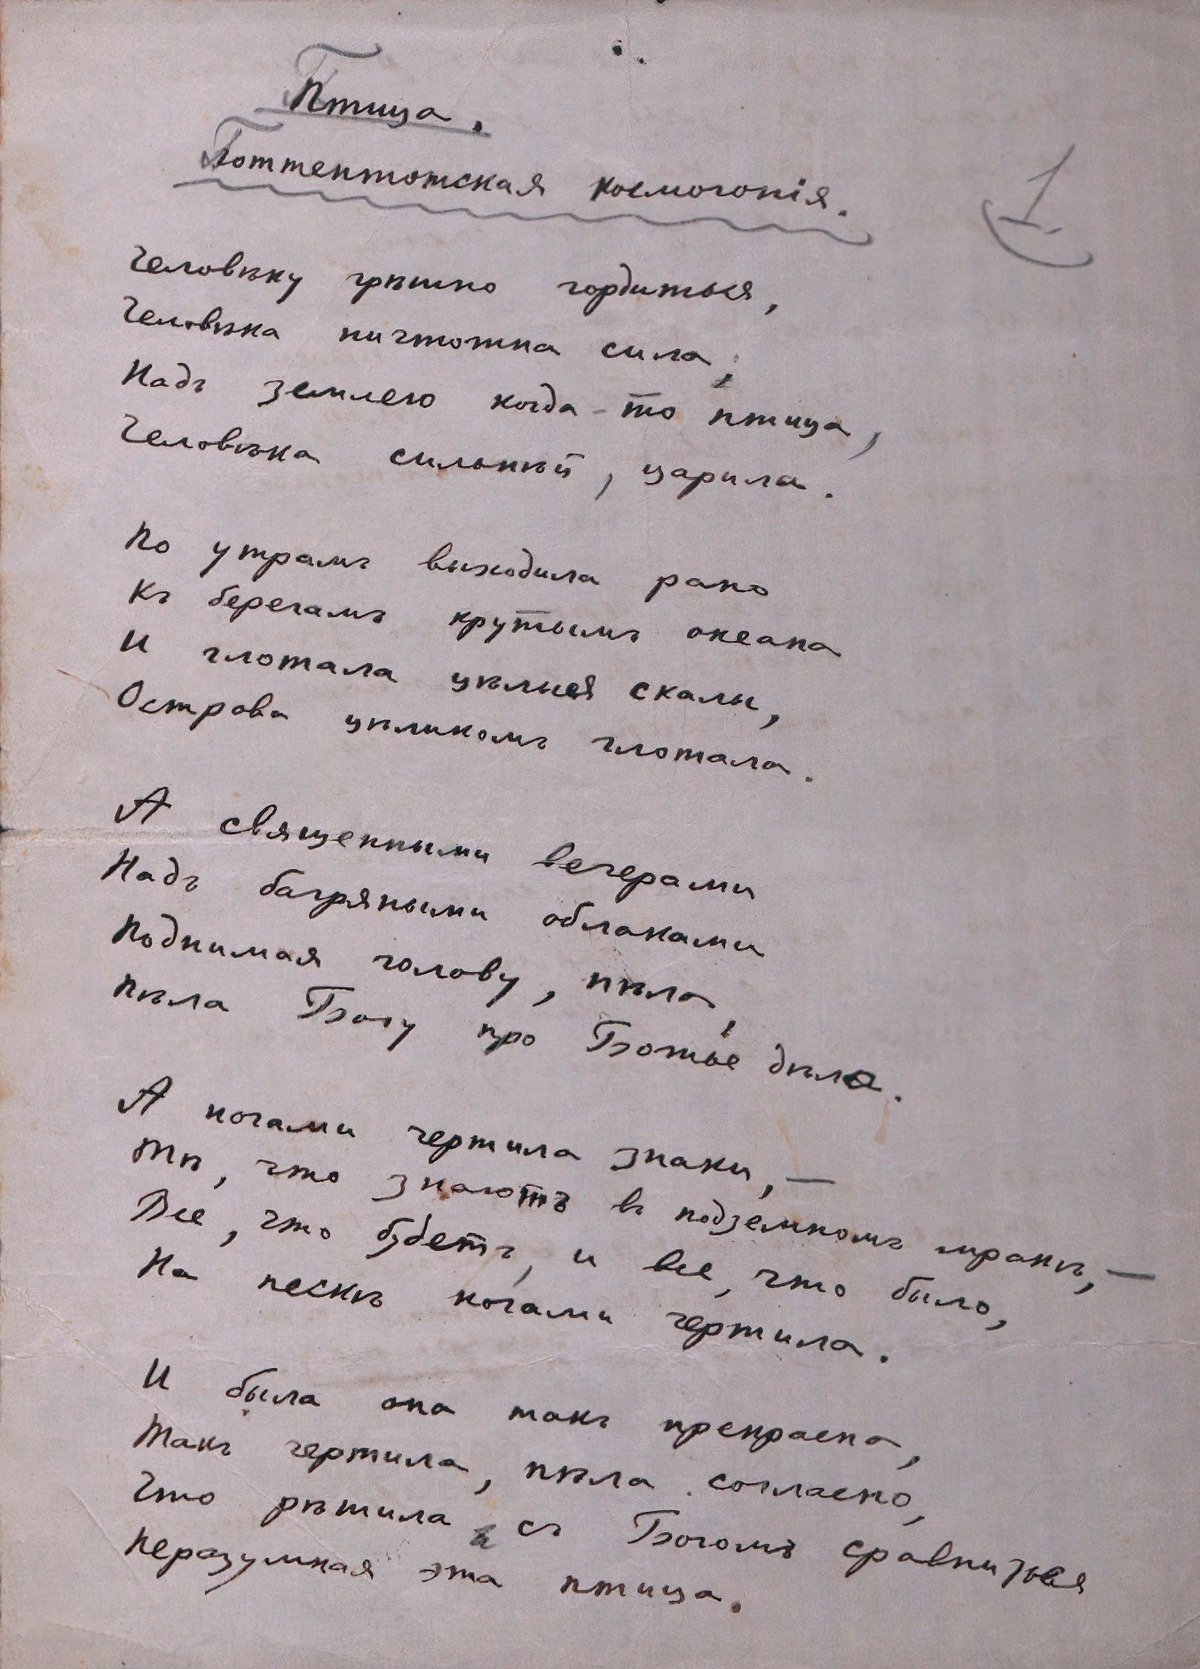 Птица.
Готтентотская космогонія.
1.
Человѣку грѣшно гордиться,
Человѣка ничтожна сила,
Надъ землею когда-то птица,
Человѣка сильнѣй, царила.
По утрамъ выходила рано
Къ берегамъ крутымъ океана
И глотала цѣлыя скалы,
Острова цѣликомъ глотала.
А священными вечерами
Надъ багряными облаками
Поднимая голову, пѣла,
Пѣла Богу про Божье дѣло.
А ногами чертила знаки,—
Тѣ, что знаютъ въ подземномъ мракѣ,—
Все, что будетъ, и все, что было,
На пескѣ ногами чертила.
И была она такъ прекрасна,
Такъ чертила, пѣла согласно,
Что рѣшила съ Богомъ сравниться
Неразумная эта птица.